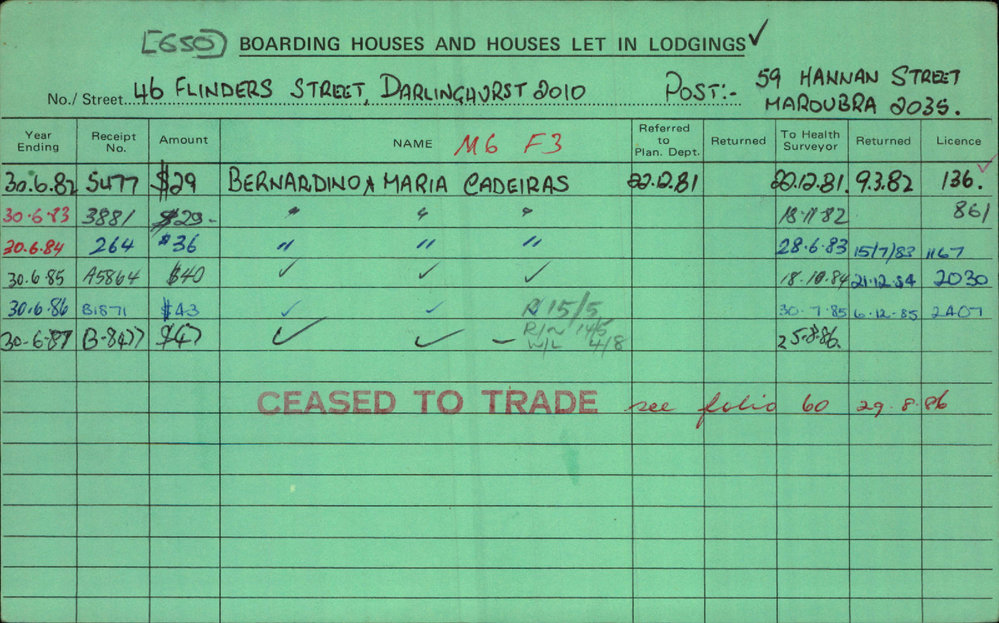 [650] BOARDING HOUSES AND HOUSES LET IN LODGINGS ✓
No./Street 46 FLINDERS STREET, DARLINGHURST 2010 POST:- 59 HANNAN STREET
MAROUBRA 2035.
Year Ending Receipt No. Amount NAME M6 F3 Referred to Plan. Dept. Returned To Health Surveyor Returned Licence
30.6.82 5477 $29 BERNARDINO & MARIA CADEIRAS 22.12.81 22.12.81. 9.3.82 136. ✓
30.6.83 3881 $29- " " " 18.11.82 861
30.6.84 264 $36 " " " 28.6.83 15/7/83 1167
30.6.85 A5864 $40 ✓ ✓ ✓ 18.10.84 21.12.84 2030
30.6.86 B1871 $43 ✓ ✓ R 15/5 30.7.85 6.12.85 2407
30-6-87 B-8477 $47 ✓ ✓ - R/N 14/5 25.8.86.
W/L 4/8
CEASED TO TRADE see folio 60 29.8.86